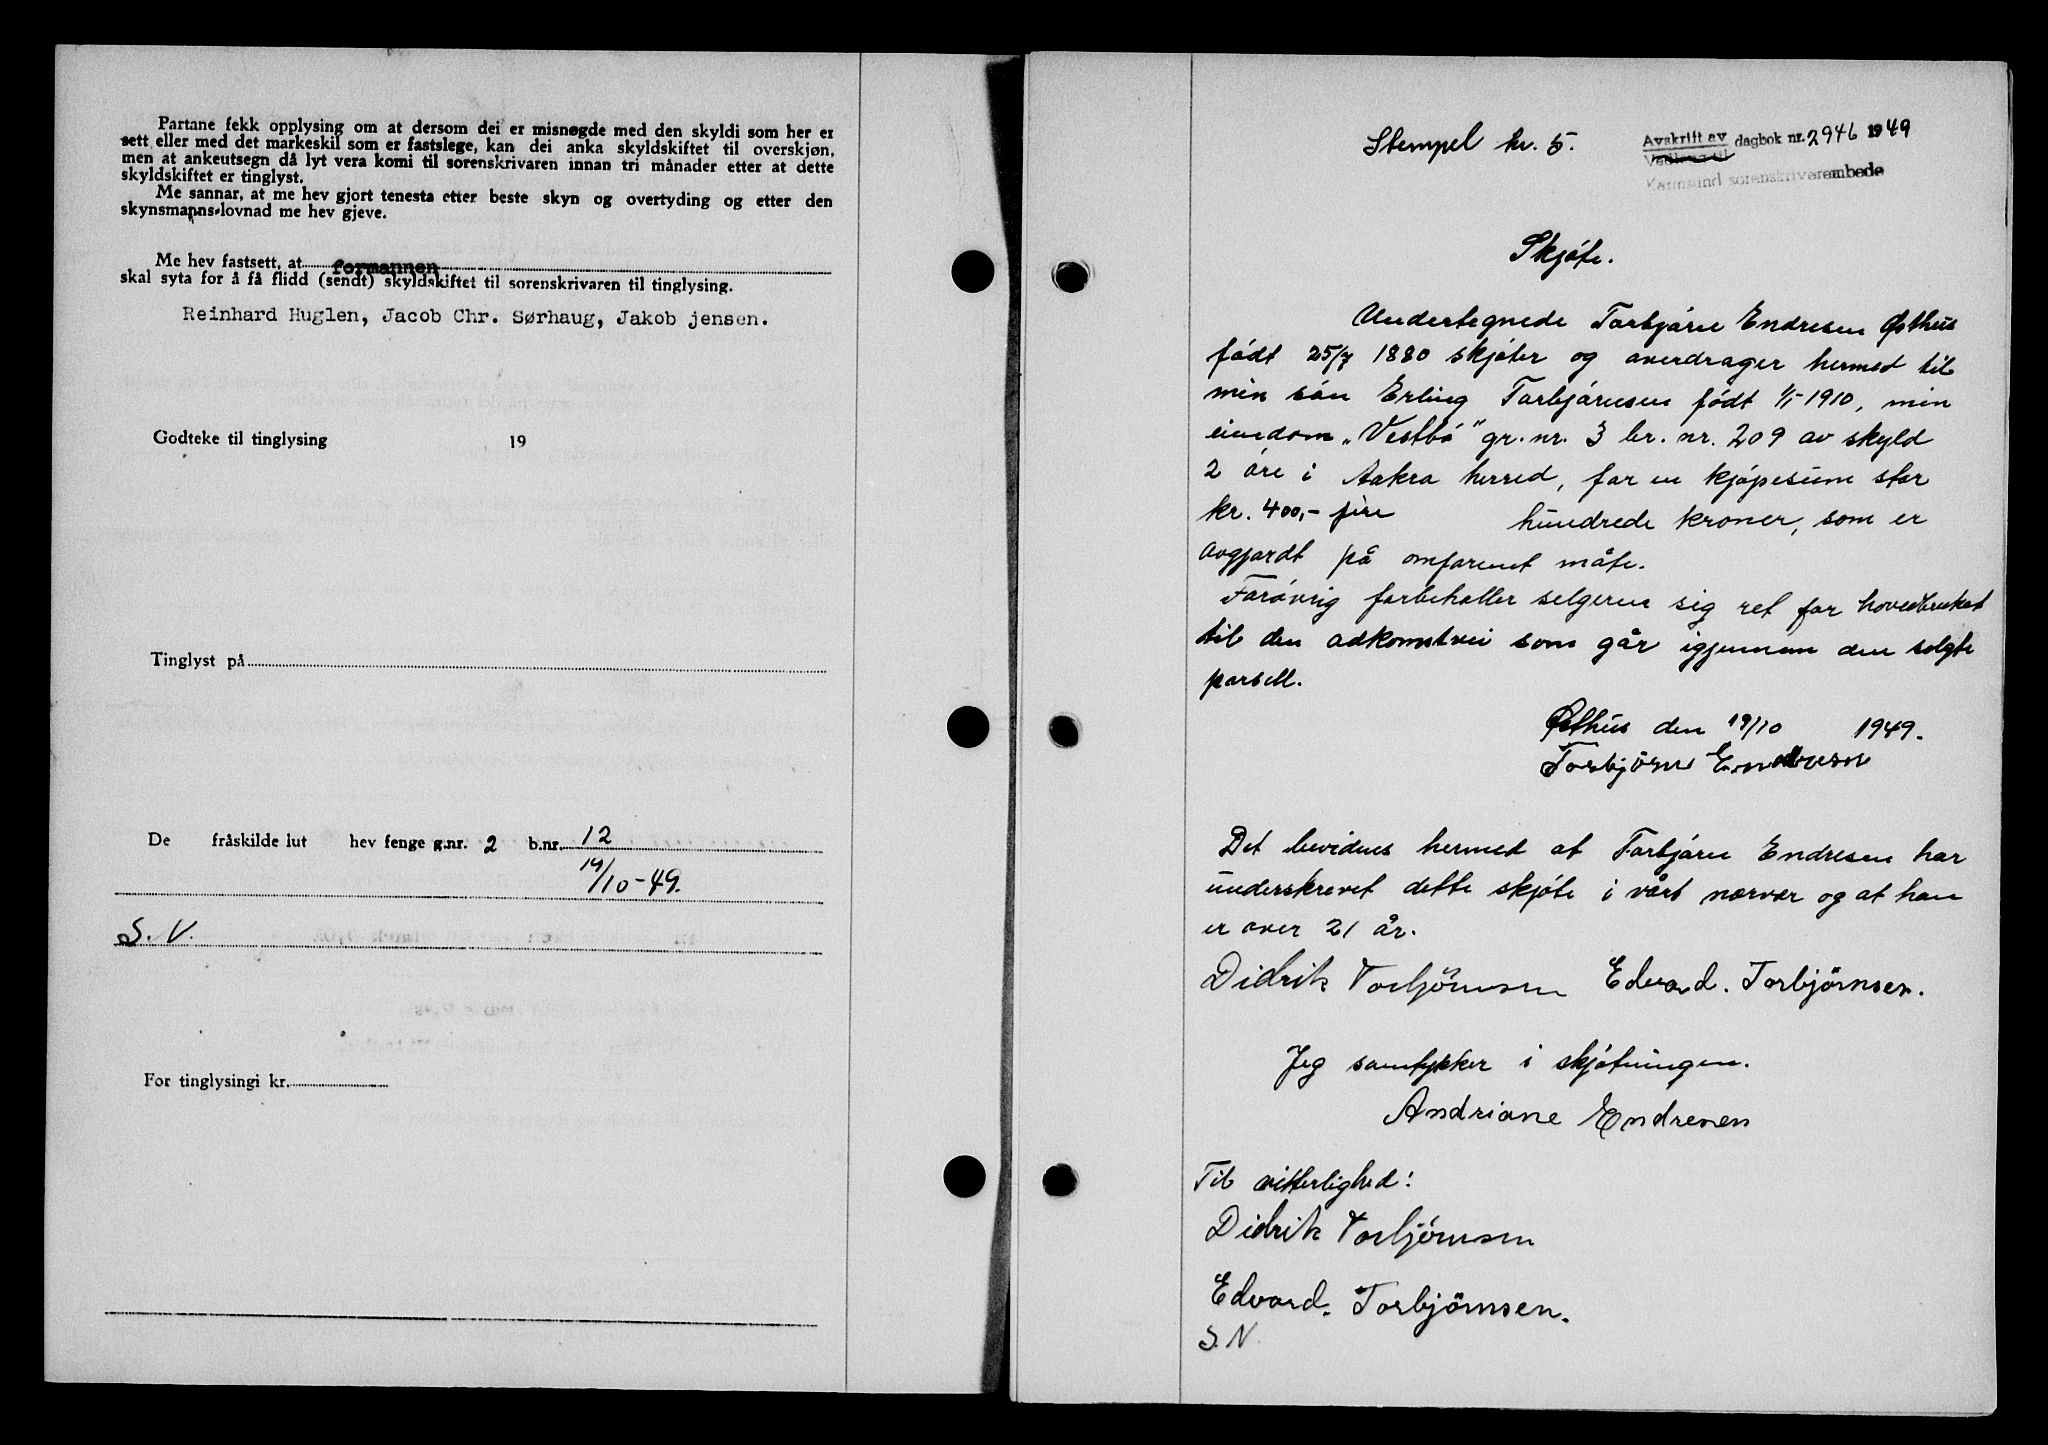 Partane fekk opplysing om at dersom dei er misnøgde med den skyldi som her er
sett eller med det markeskil som er fastslege, kan dei anka skyldskiftet til overskjøn,
men at ankeutsegn då lyt vera komi til sorenskrivaren innan tri månader etter at dette
skyldskiftet er tinglyst.
Me sannar, at me hev gjort tenesta etter beste skyn og overtyding og etter den
skynsmanns-lovnad me hev gjeve.
Me hev fastsett, at formannen
skal syta for å få flidd (sendt) skyldskiftet til sorenskrivaren til tinglysing.
Reinhard Huglen, Jacob Chr. Sørhaug, Jakob jensen.
Godteke til tinglysing 19
Tinglyst på
De fråskilde lut hev fenge g.nr. 2 b.nr. 12
14/10-49.
S. V.
For tinglysingi kr.
Stempel kr. 5.
Avskrift av dagbok nr. 2946 1949
Vedlegg til
Karmsund sorenskriverembede
Skjøte.
Undertegnede Torbjørn Endresen Østhus
født 25/7 1880 skjøter og overdrager hermed til
min søn Erling Torbjørnsen født 1/1-1910, min
eiendom „Vestbø" gr. nr. 3 br. nr. 209 av skyld
2 øre i Aakra herred, for en kjøpesum stor
kr. 400,- fire hundrede kroner, som er
avgjordt på omforenet måte.
Forøvrig forbeholler selgeren sig ret for hovedbruket
til den adkomstvei som går igjennem den solgte
parsell.
Østhus den 19/10 1949.
Torbjörn Endresen
Det bevidnes hermed at Torbjørn Endresen har
underskrevet dette skjøte i vårt nærvær og at han
er over 21 år.
Didrik Torbjörnsen Edvard. Torbjörnsen.
Jeg samtykker i skjøtningen.
Andriane Endresen
Til vitterlighed:
Didrik Torbjörnsen
Edvard. Torbjörnsen.
S. N.